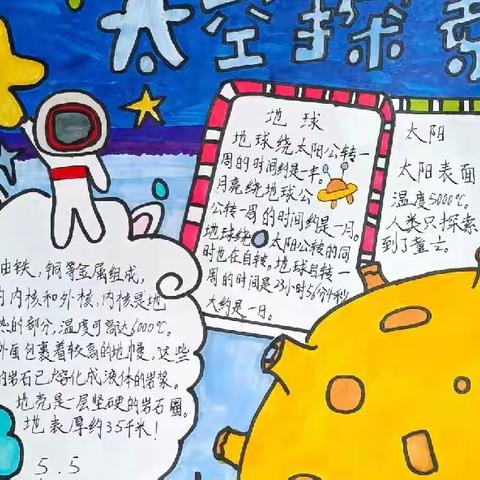 太空探索
地球
地球绕太阳公转一
周的时间约是一年。
月亮绕地球公
公转一周的时间约是一月。
地球绕太阳公转的同
时也在自转。地球自转一
周的时间是23小时56分4秒
大约是一日。
太阳
太阳表面
温度5000℃。
人类只探索
到了
由铁，铜等金属组成，
内核和外核，内核是地
热的部分，温度可高达6000℃。
外面包裹着较高的地幔，这些
的岩石已熔化成液体的岩浆。
地壳是一层坚硬的岩石圈。
地表厚约35千米！
5.5